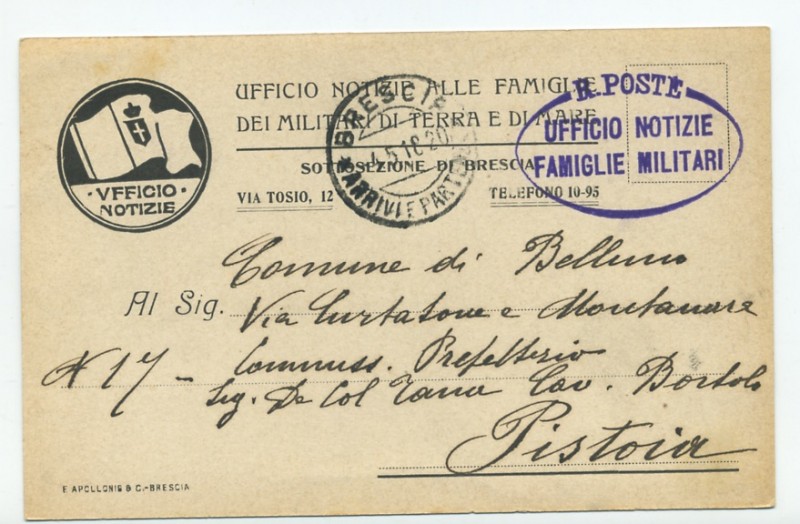 UFFICIO NOTIZIE ALLE FAMIGLIE
DEI MILITARI DI TERRA E DI MARE
SOTTOSEZIONE DI BRESCIA
VIA TOSIO, 12 TELEFONO 10-95
· VFFICIO ·
NOTIZIE
BRESCIA
5 18 20
ARRIVI E PARTENZE
R. POSTE
UFFICIO NOTIZIE
FAMIGLIE MILITARI
Comune di Belluno
Al Sig. Via Curtatone e Montanara
N 17 - Commiss. Prefettizio
Sig. De Col Tana Cav. Bortolo
Pistoia
E APOLLONIS & C.-BRESCIA